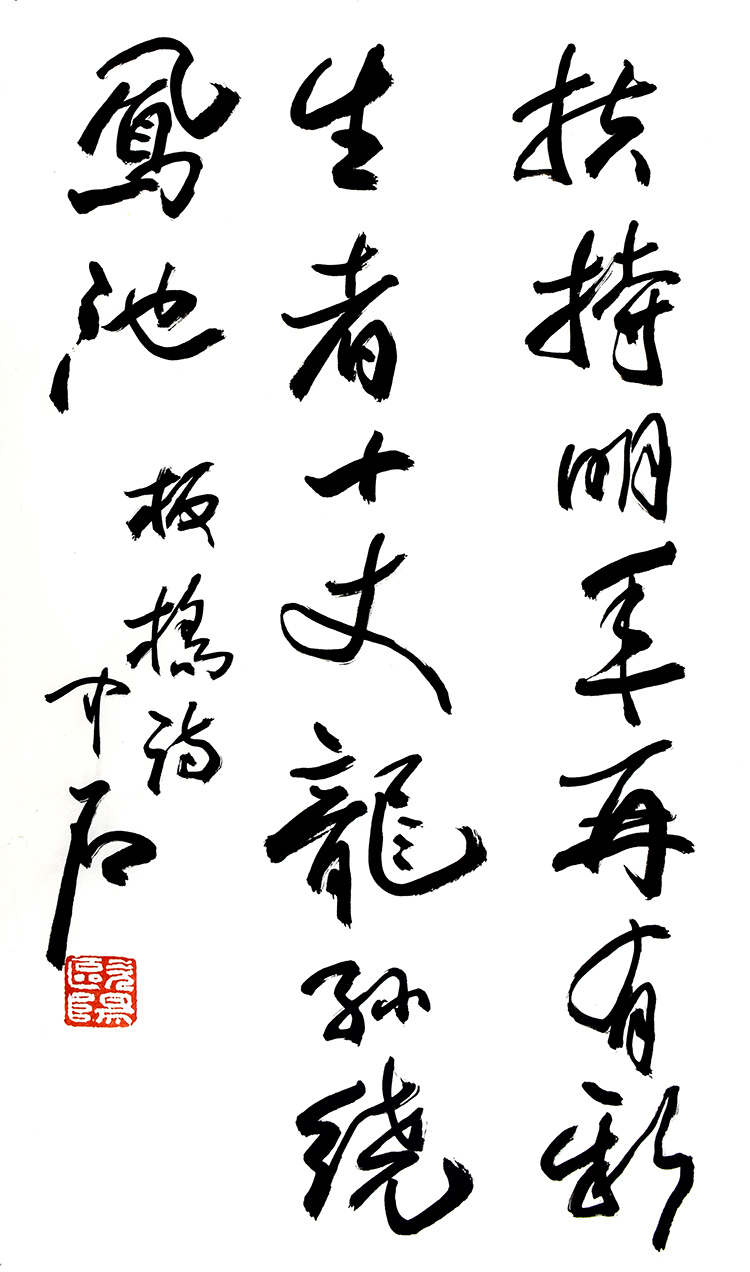 扶持明年再有新
生者十丈龍孫繞
鳳池
板橋詩
中石